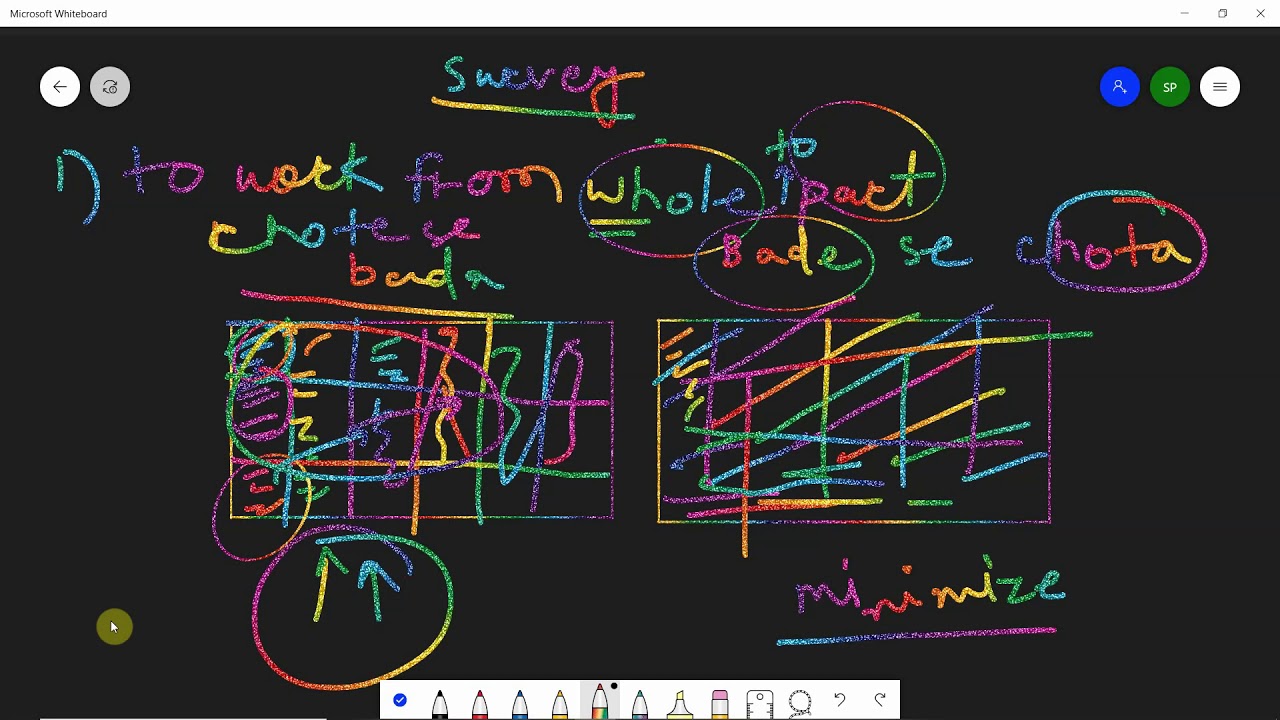 Microsoft Whiteboard
SP
Survey
1) to work from whole to part
chote se
bada
Bade se chota
minimize